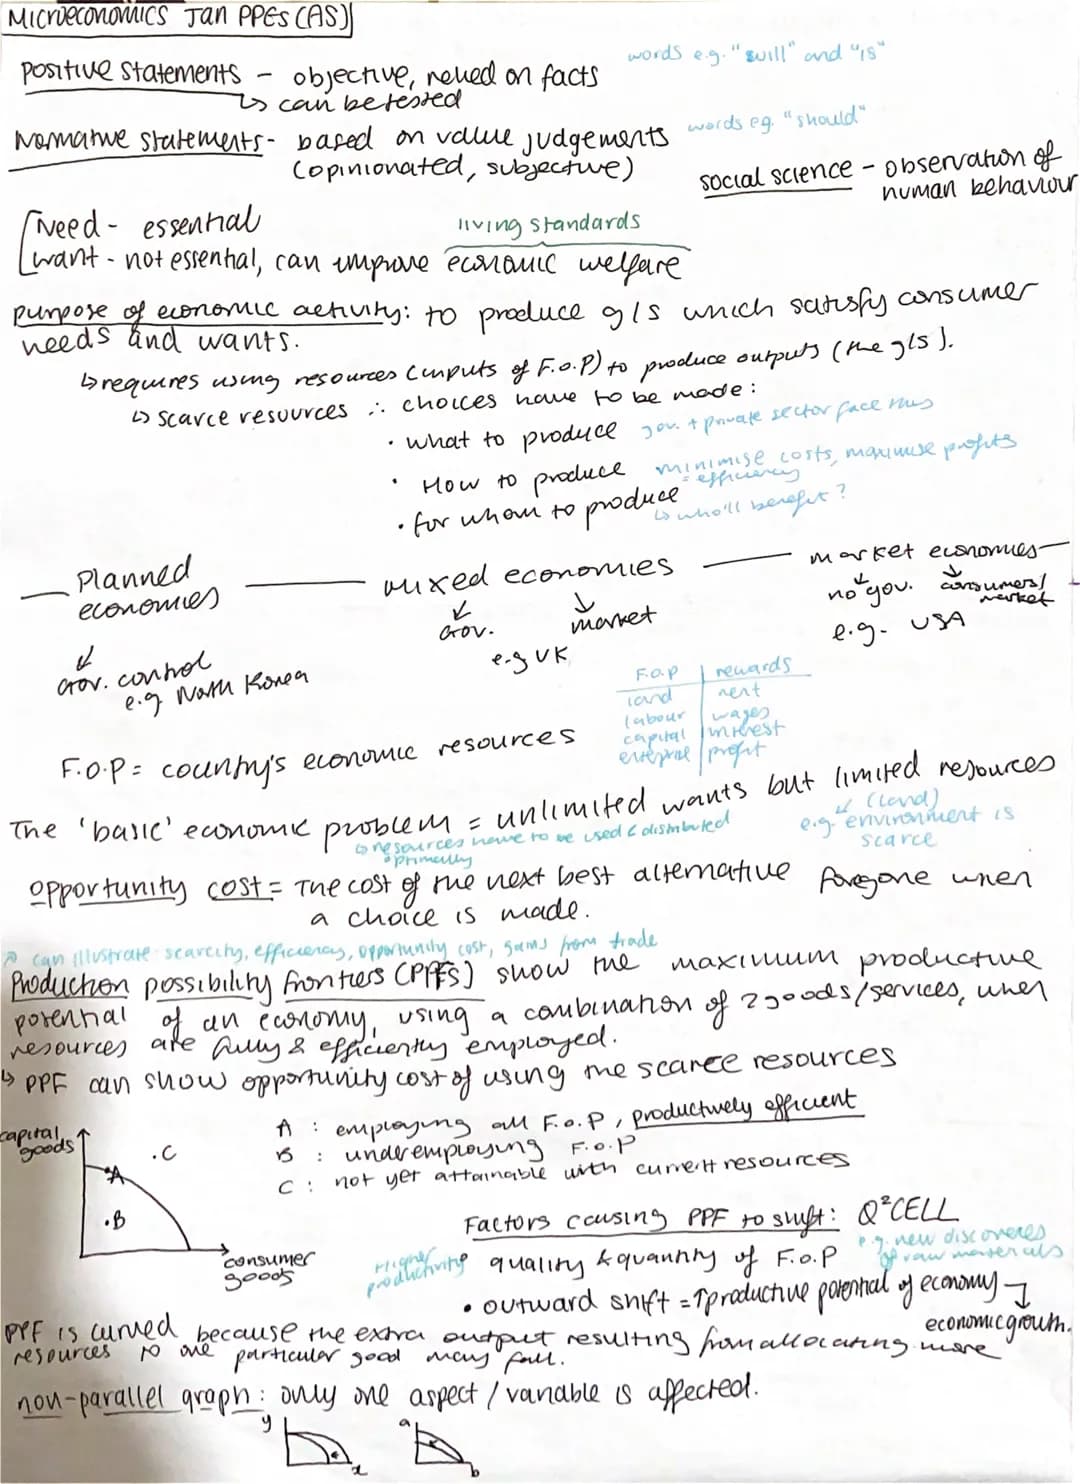 MICROECONOMICS Jan PPEs (AS)
words e.g. "will" and "is"
positive statements - objective, relied on facts
↳ can be tested
Normative statements - based on value judgements words eg. "should"
(opinionated, subjective)
social science - observation of
human behaviour
Need - essential
living standards
want - not essential, can improve economic welfare
purpose of economic activity: to produce g/s which satisfy consumer
needs and wants.
↳ requires using resources (inputs of F.o.P) to produce outputs (the g/s).
↳ scarce resources ∴ choices have to be made:
• what to produce gov. + private sector face this
• How to produce minimise costs, maximise profits
= efficiency
• for whom to produce
↳ who'll benefit?
Planned economies
mixed economies
market economies
Gov. market
no gov. consumers/
market
e.g UK
e.g. USA
Gov. control
e.g North Korea
F.o.P | rewards
land | rent
labour | wages
capital | interest
enterprise | profit
F.O.P = country's economic resources
The 'basic' economic problem = unlimited wants but limited resources
↳ resources have to be used & distributed
optimally
(land)
e.g. environment is
scarce
opportunity cost = The cost of the next best alternative foregone when
a choice is made.
can illustrate scarcity, efficiency, opportunity cost, gains from trade
Production possibility frontiers (PPFs) show the maximum productive
potential of an economy, using a combination of 2 goods/services, when
resources are fully & efficiently employed.
↳ PPF can show opportunity cost of using the scarce resources
capital
goods
.C
A
.B
consumer
goods
A : employing all F.o.P, productively efficient
B : underemploying F.o.P
C : not yet attainable with current resources
Factors causing PPF to shift: Q²CELL
e.g. new discoveries
of raw materials
Higher
productivity
quality & quantity of F.o.P
• outward shift = ↑productive potential of economy
economic growth.
PPF is curved because the extra output resulting from allocating more
resources to one particular good may fall.
non-parallel graph: only one aspect / variable is affected.
y
x
a
b